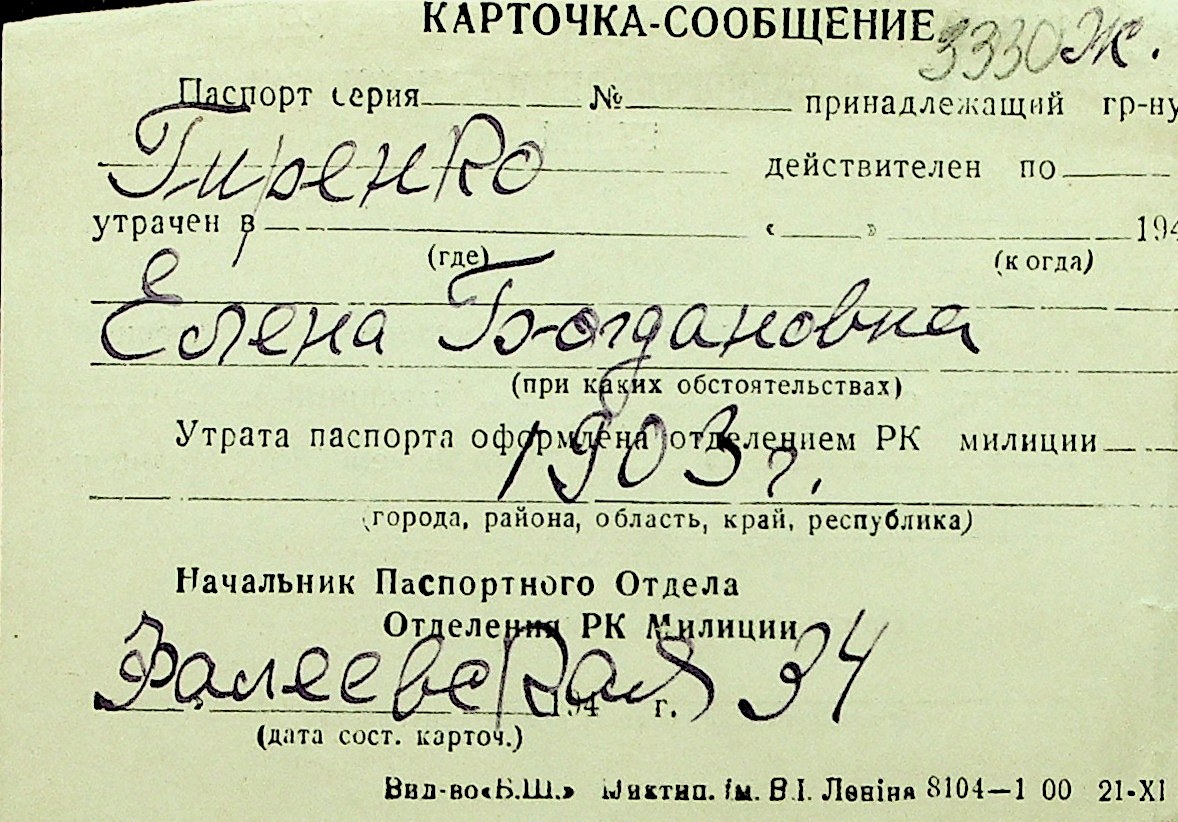 КАРТОЧКА-СООБЩЕНИЕ
3330Ж.
Паспорт серия № принадлежащий гр-ну
Гиренко
действителен по
утрачен в « » 194
(где) (когда)
Елена Богдановна
(при каких обстоятельствах)
Утрата паспорта оформлена отделением РК милиции
1903 г.
(города, района, область, край, республика)
Начальник Паспортного Отдела
Отделения РК Милиции
Фалеевская 34
194 г.
(дата сост. карточ.)
Вид-во «Б.Ш.» Миктип. Ім. В.І. Леніна 8104—1 00 21-XI